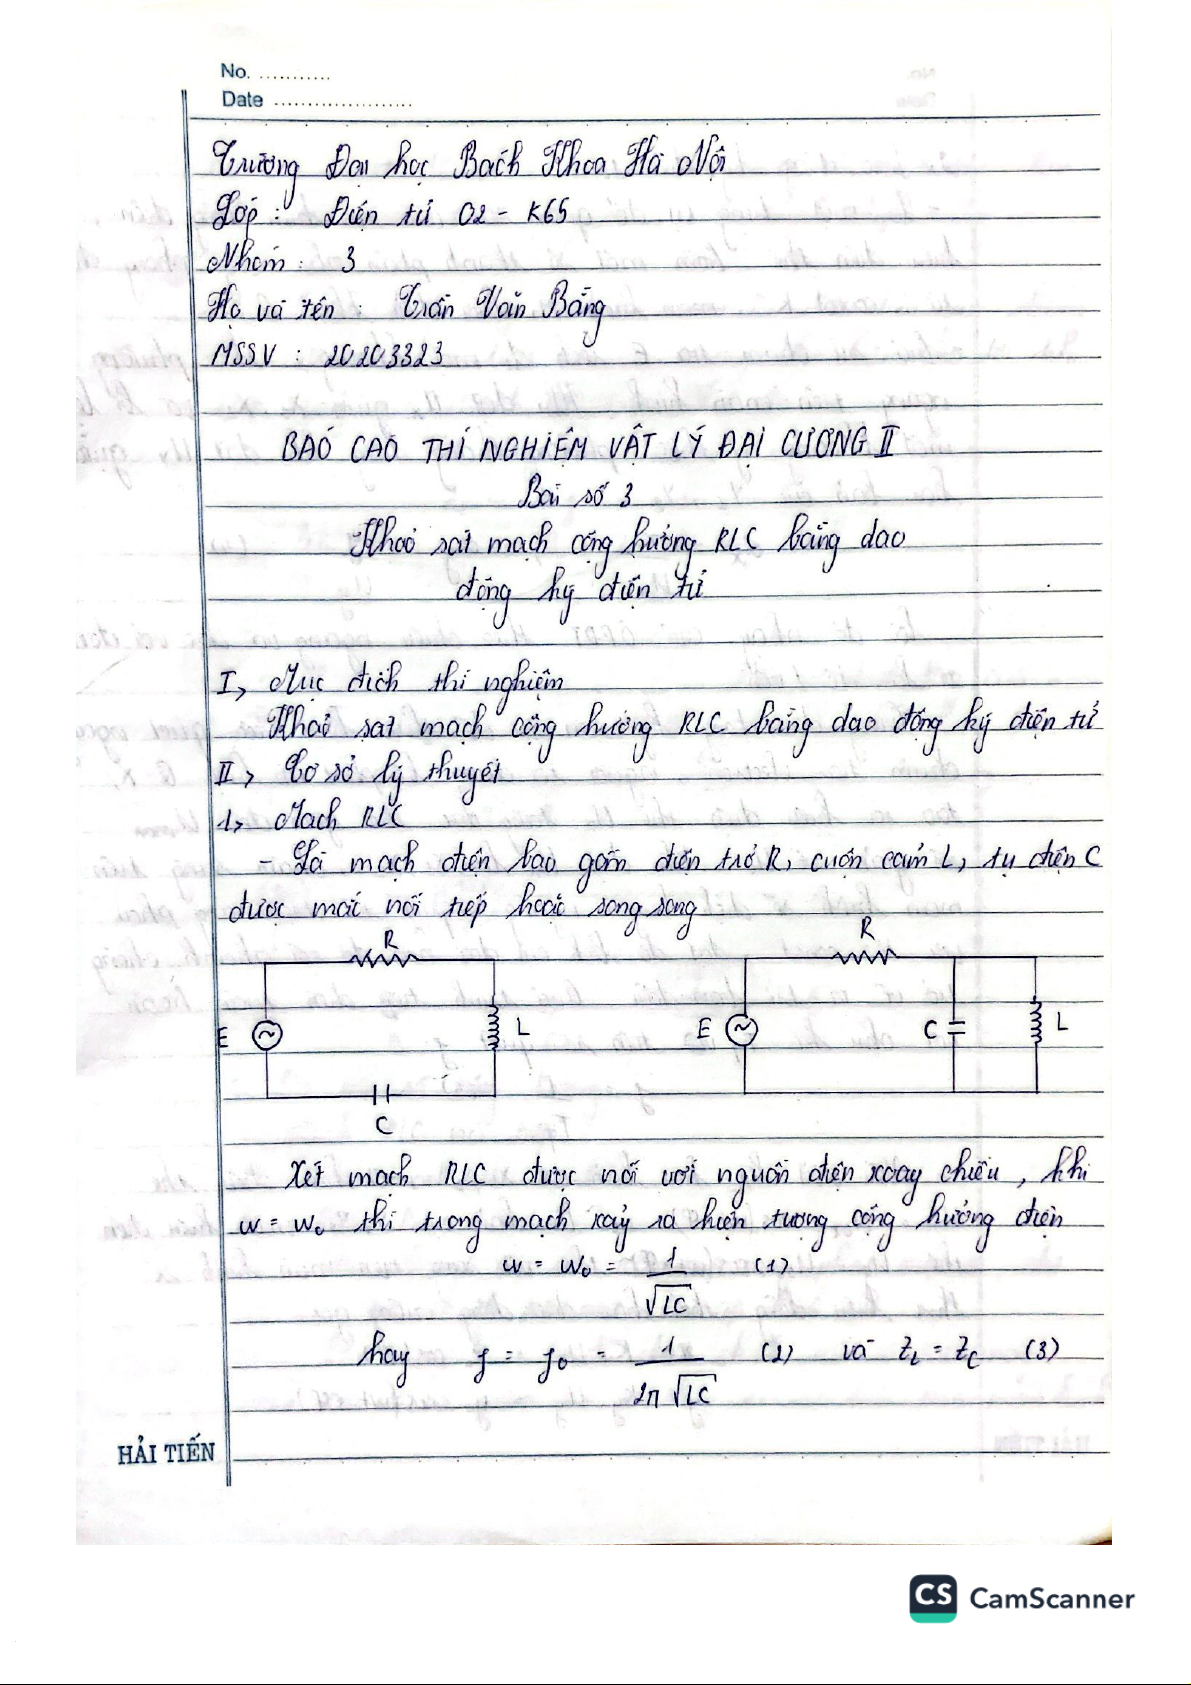 No. ...........
Date ......................
Trường Đại học Bách Khoa Hà Nội
Lớp : Điện tử 02 - K65
Nhóm : 3
Họ và tên : Trần Văn Bằng
MSSV : 20203323
BÁO CÁO THÍ NGHIỆM VẬT LÝ ĐẠI CƯƠNG II
Bài số 3
Khảo sát mạch cộng hưởng RLC bằng dao
động ký điện tử
I, Mục đích thí nghiệm
Khảo sát mạch cộng hưởng RLC bằng dao động ký điện tử
II, Cơ sở lý thuyết
1, Mạch RLC
- Là mạch điện bao gồm điện trở R, cuộn cảm L, tụ điện C
được mắc nối tiếp hoặc song song
R R
E L E C L
C
Xét mạch RLC được nối với nguồn điện xoay chiều, khi
w = w₀ thì trong mạch xảy ra hiện tượng cộng hưởng điện
w = w₀ = 1/√LC (1)
hay f = f₀ = 1/2π√LC (2) và Z_L = Z_C (3)
HẢI TIẾN
CS CamScanner